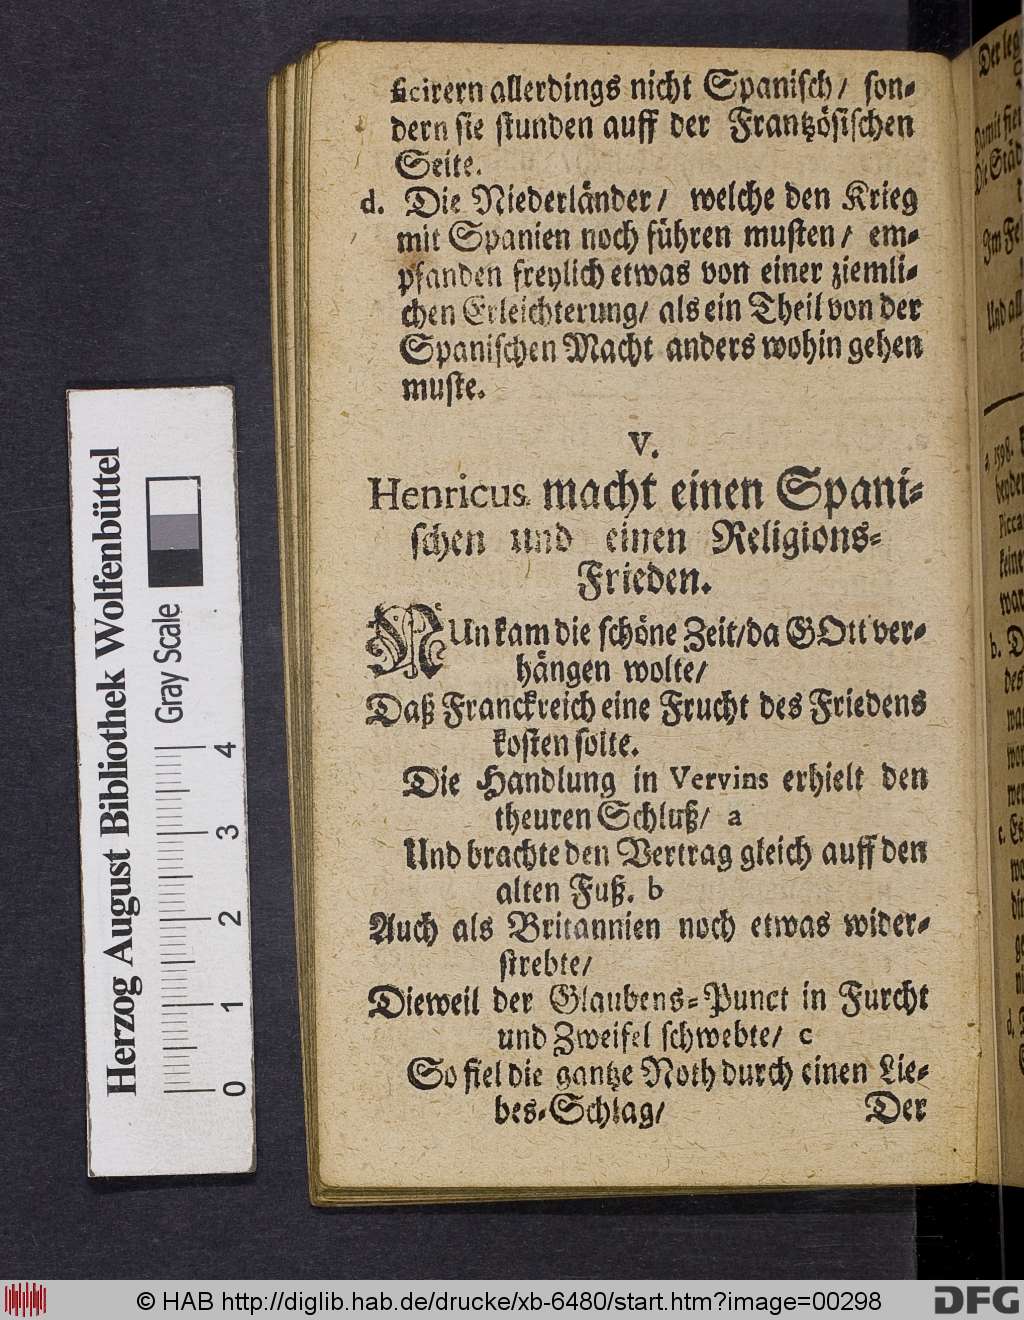 ficirern allerdings nicht Spanisch/ son-
dern sie stunden auff der Frantzösischen
Seite.
d. Die Niederländer/ welche den Krieg
mit Spanien noch führen musten/ em-
pfanden freylich etwas von einer ziemli-
chen Erleichterung/ als ein Theil von der
Spanischen Macht anders wohin gehen
muste.
V.
Henricus macht einen Spani-
schen und einen Religions-
Frieden.
NUn kam die schöne Zeit/da GOtt ver-
hängen wolte/
Daß Franckreich eine Frucht des Friedens
kosten solte.
Die Handlung in Vervins erhielt den
theuren Schluß/ a
Und brachte den Vertrag gleich auff den
alten Fuß. b
Auch als Britannien noch etwas wider-
strebte/
Dieweil der Glaubens-Punct in Furcht
und Zweifel schwebte/ c
So fiel die gantze Noth durch einen Lie-
bes-Schlag/
Der
Der leg
Damit fiel
Die Städ
Im Fe
Und all
a 1598.
beyder
Picca
keine
war
b. D
des
wa
wor
wer
c. Es
d.
Herzog August Bibliothek Wolfenbüttel
Gray Scale
0 1 2 3 4
© HAB http://diglib.hab.de/drucke/xb-6480/start.htm?image=00298
DFG